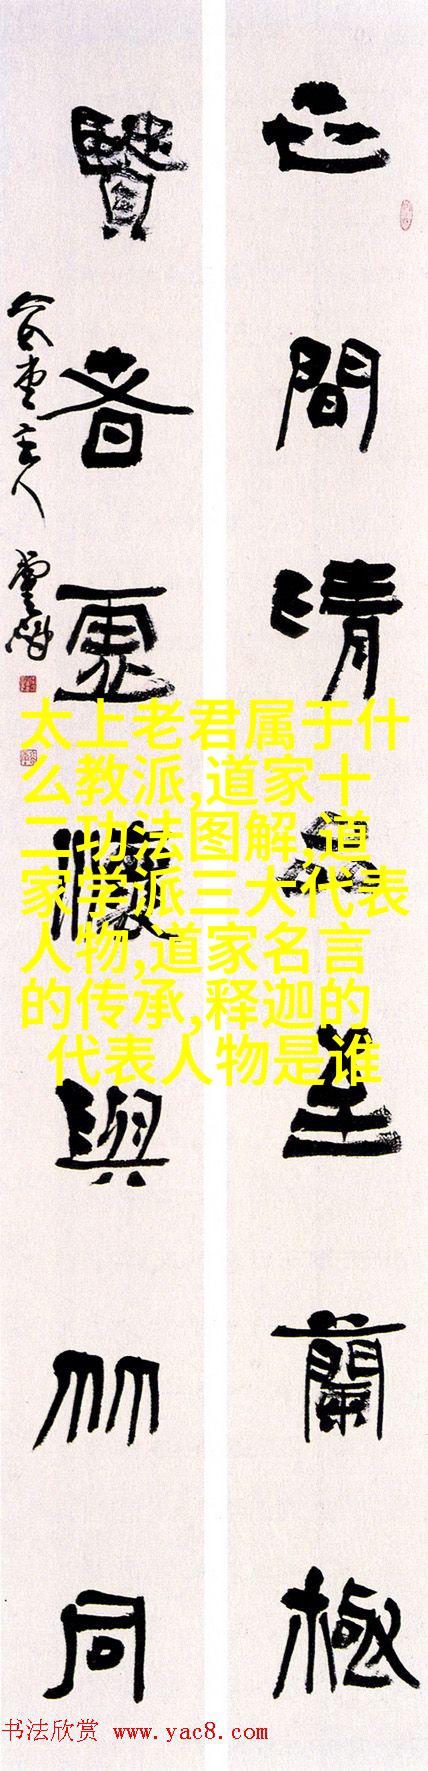 世間清品至蘭極
賢者虛懷與竹同
主人
太上老君属于什
么教派,道家十
二功法图解,道
家学派三大代表
人物,道家名言
的传承,释迦的
代表人物是谁
书法欣赏 www.yac8.com